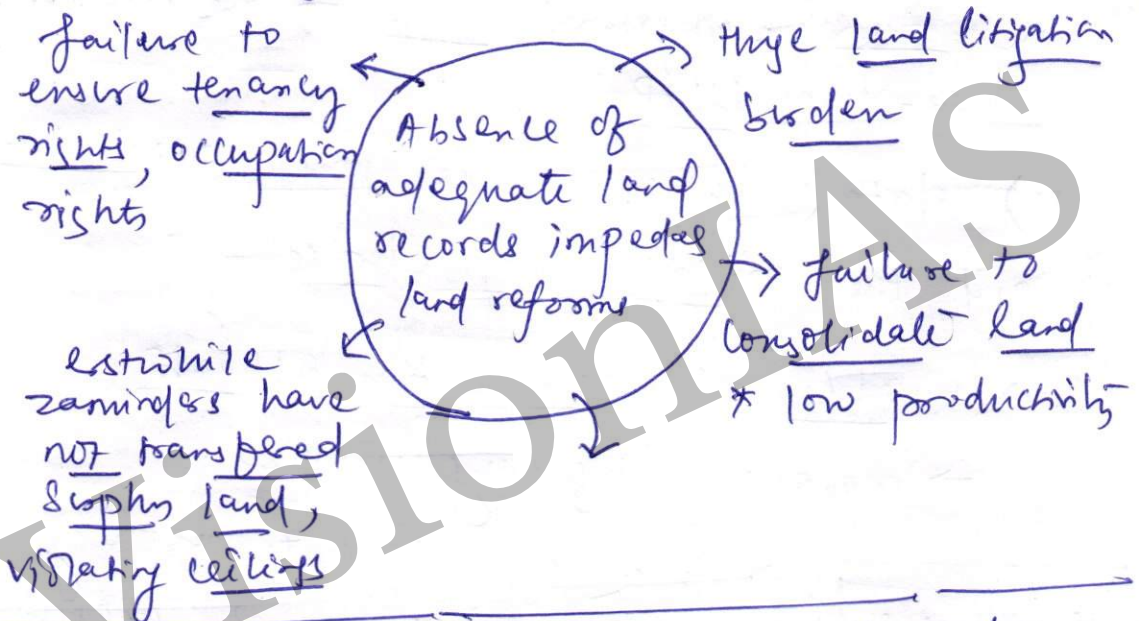 failure to
ensure tenancy
rights, occupation
rights
Absence of
adequate land
records impedes
land reforms
Huge land litigation
burden
failure to
consolidate land
* low productivity
erstwhile
zamindars have
not transfered
surplus land,
violating ceilings
VisionIAS